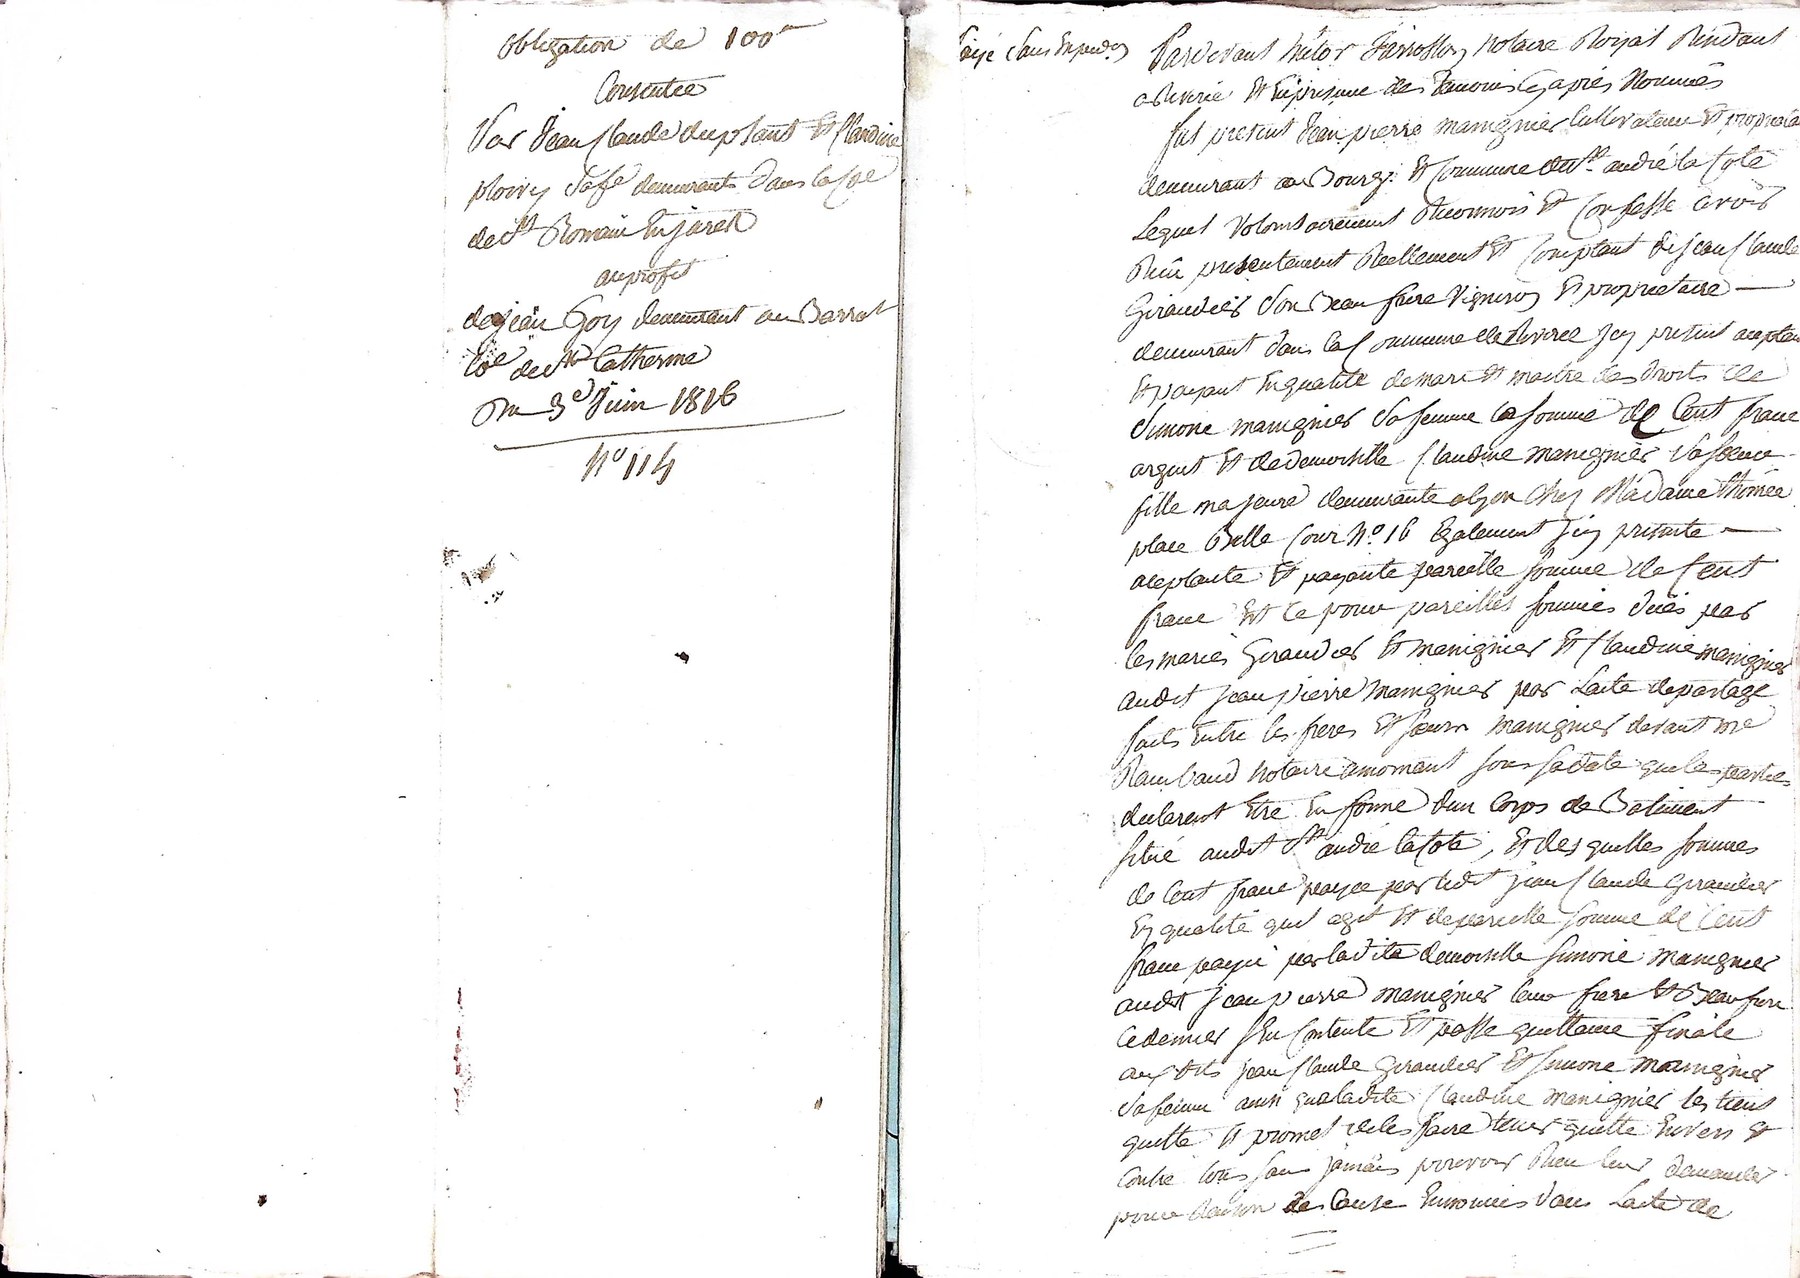 Obligation de 100 f
Consentee
Par Jean Claude duplant Et Claudine
ploivy Safe demeurants dans la Coe
de St Romain En jarest
au profit
de jean Goy demeurant au Barrat
Coe de Ste Catherine
Du 3e Juin 1816
No 114
Pardevant notaire Royal Résidant
a Riverie Et En presence des temoins Cy apres Nommés
fut present Jean pierre manignier Cultivateur Et propriétai
demeurant au Bourg Et Commune de St. andré la Cote
Lequel Volontairement Reconnois Et Confesse avoir
Reçu presentement Reellement Et Comptant de jean Claude
Giraudier Son Beau frere Vigneron Et propriétaire
demeurant dans la Commune de Riverie Jcy present acceptan
Et payant En qualité de mari Et maitre des droits de
Simone manignier Sa femme la somme de Cent franc
argent Et de demoiselle Claudine manignier Sa soeur
fille majeure demeurante a lyon Chez Madame thomée
place Belle Cour No. 16 Egalement Jcy presente
aceptante Et payante pareille somme de Cent
franc Et Ce pour pareilles sommes dués par
les mariés Giraudier Et manignier Et Claudine manignier
audit jean pierre manignier par Lacte de partage
faits Entre les freres Et soeurs manignier devant me
Raimbaud notaire a mornant sous sa date que les parties
declarent Etre En forme dun Corps de Batiment
situé audit St andré la Cote, Et des quelles sommes
de Cent franc payée par ledit jean Claude Giraudier
En qualité quil agit Et de pareille somme de Cent
franc payée par ladite demoiselle simone manignier
audit jean pierre manignier leur frere Et Beau frere
Ce dernier sen Contente Et passe quittance finale
aux dits jean Claude Giraudier Et simone manignier
Sa femme ainsi qua ladite Claudine manignier les tient
quitte Et promet de les faire tenir quitte Envers Et
Contre tous sans jamais pouvoir Rien leur demander
pour Raison des Cause Enoncées dans Lacte de